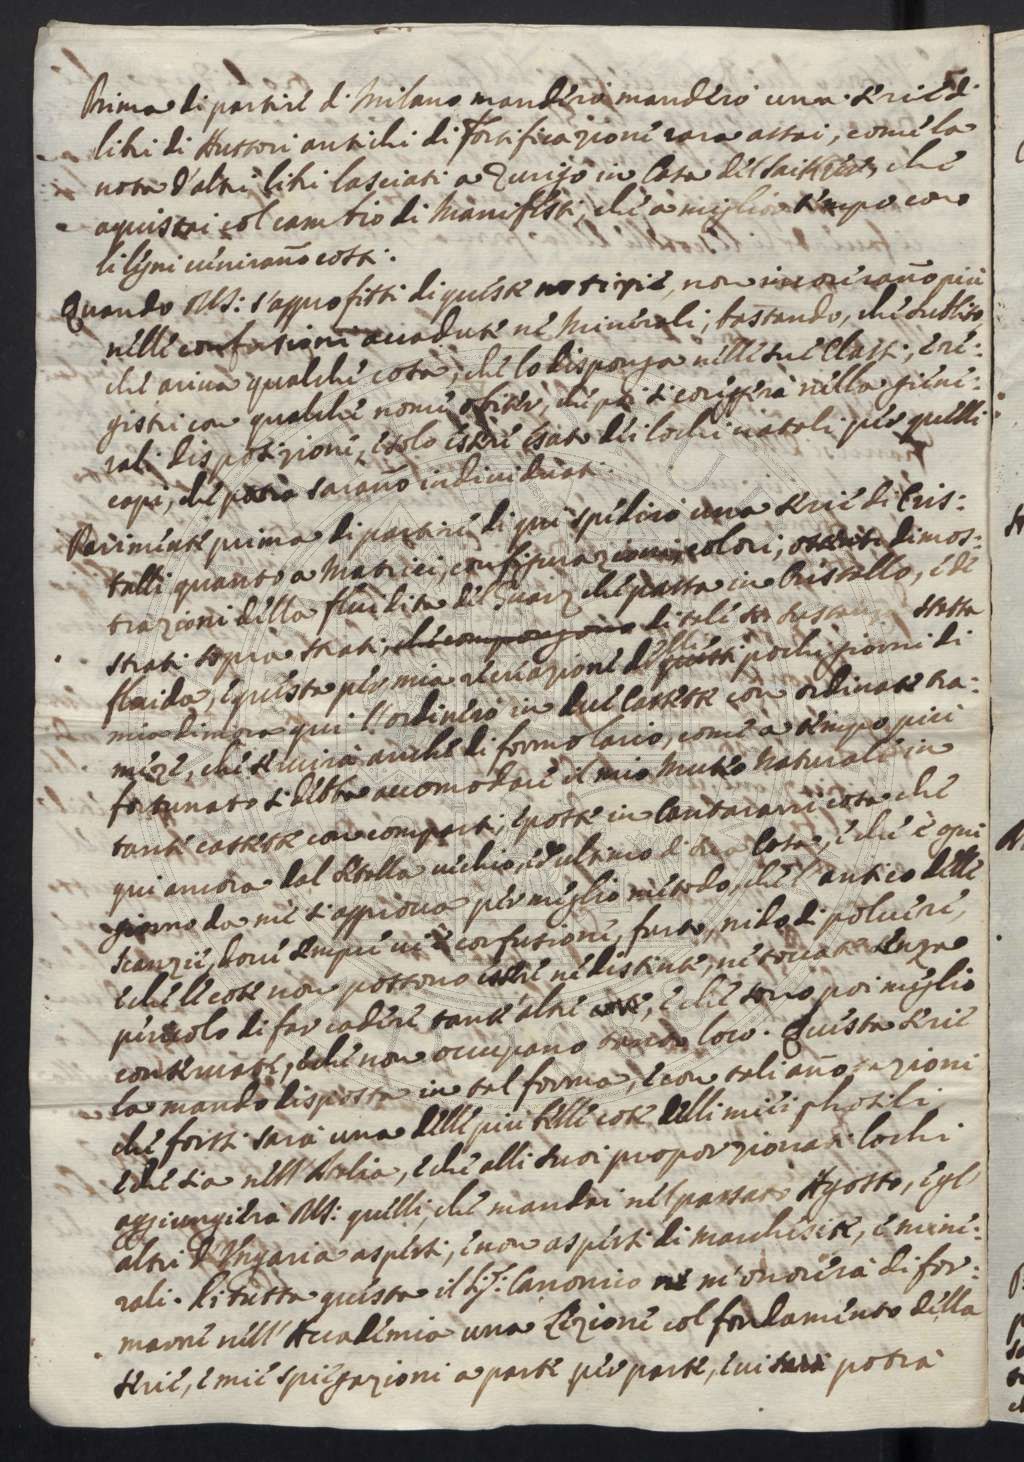 5
Prima di partire di Milano manderà manderò una serie di
libri di Auttori antichi di Fortificazione rara assai, come la
nota d'altri libri lasciati a Zurigo in Casa del che
aquistai col cambio di Manifesti, che a miglior tempo con
li legni veniranno costi.
Quando VS: s'approfitti di queste notizie, non incorerano più
nelle confusioni accadute ne Minerali, bastando, che subbito
che ariva qualche cosa, che lo disponga nelle sue Classi, e re:
gistri con qualche nome che poi si corigerà nella gene:
rale disposizione, e solo essere esato dei lochi natali per quelli
capi, che potra sarano individuati.
Parimente prima di partire di qui spedirò una serie di Cris:
talli quanto a Matrici, configurazioni, colori, dimos:
trazioni della fluidita del Quarz che passa in Cristallo, e de
strati sopra strati, che compongono di tale sostanza stessa
fluida, e questa per mia recreazione di questi pochi giorni di
mia dimora qui l'ordinerò in due Cassette con ordinate ca:
mere, che servirà anche di formolario, come a tempo più
fortunato si debba accomodare il mio Museo Naturale in
tante cassette con comparti, e poste in Cantarani cosa che
qui ancora dal Stella vechio, ed ultimo di sua Casa, e che è ogni
giorno da me si approva per miglio metodo, che l'antico delle
Scanzie, dove sempre vi è confusione, furto, nido di polvere,
e che le cose non possono essere ne distinte, ne tocate senza
pericolo di far cadere tant'altre cose, e che sono poi meglio
conservate, e che non occupano tanto loco. Questa serie
la mando disposta in tal forma, e con tali annotazioni
che forsi sarà una delle più belle cose delli miei phosili
e che sia nell'Italia, e che alli suoi proporzionati lochi
aggiungierà VS: quelli, che mandai nel passato Agosto, e gl'
altri d'Ungaria asperti, e non asperti di marchesite, e mine:
rali. Di tutta questa il Sig.r Canonico m'onorerà di for:
marne nell'Accademia una Lezione col fondamento della
serie, e mie spiegazioni a parte per parte, e vi sarà potrà